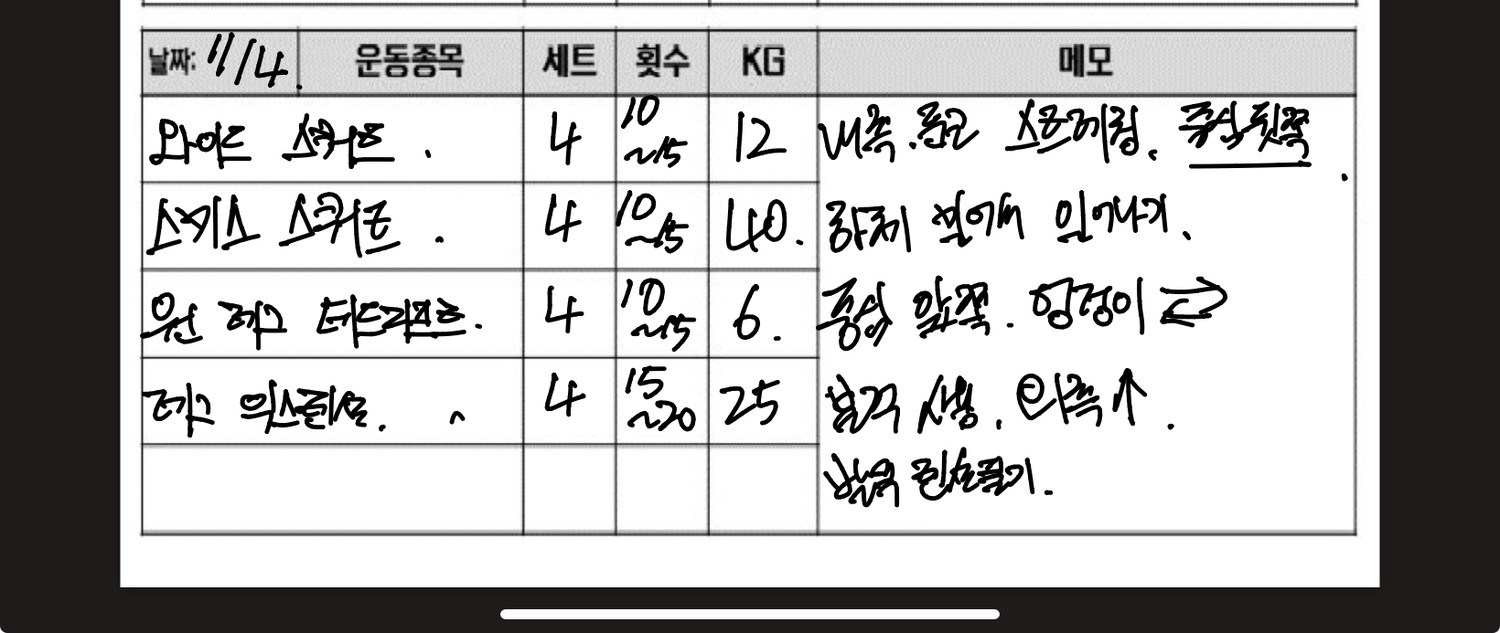 날짜: 11/4. 운동종목 세트 횟수 KG 메모
와이드 스쿼트. 4 10~15 12 내측. 둔근 스트레칭. 중심 뒷쪽.
스미스 스쿼트. 4 10~15 40. 하체 밀어서 일어나기.
원 레그 데드리프트. 4 10~15 6. 중심 앞쪽. 엉덩이 ⇄
레그 익스텐션. 4 15~20 25 발각 사용. 외측↑.